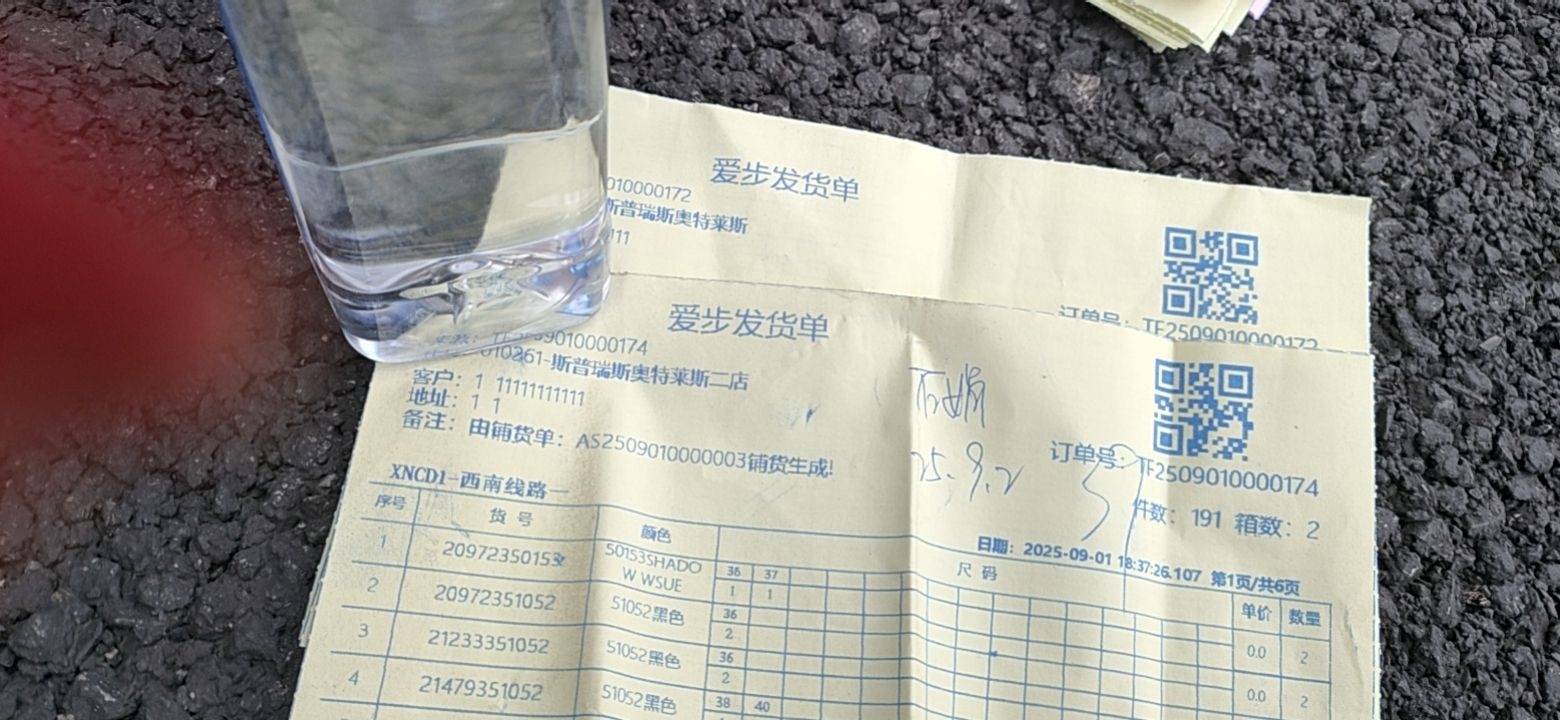 爱步发货单
010000172
斯普瑞斯奥特莱斯
111
订单号: TF2509010000172
爱步发货单
TF2509010000174
010261-斯普瑞斯奥特莱斯二店
客户: 1 11111111111
地址: 1 1
备注: 由铺货单: AS2509010000003铺货生成!
25.9.2
订单号: TF2509010000174
件数: 191 箱数: 2
XNCD1-西南线路一
日期: 2025-09-01 18:37:26.107 第1页/共6页
序号 货 号 颜色 尺 码 单价 数量
1 20972350153 50153SHADO
W WSUE 36 37
1 1 0.0 2
2 20972351052 51052黑色 36
2 0.0 2
3 21233351052 51052黑色 36
2
4 21479351052 51052黑色 38 40